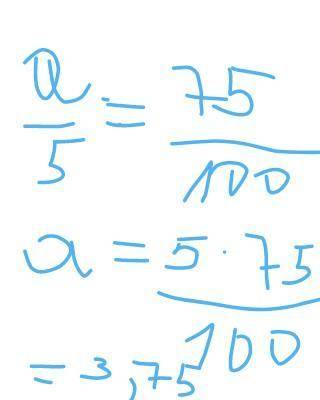 a/5 = 75/100
a = 5 · 75/100
= 3,75